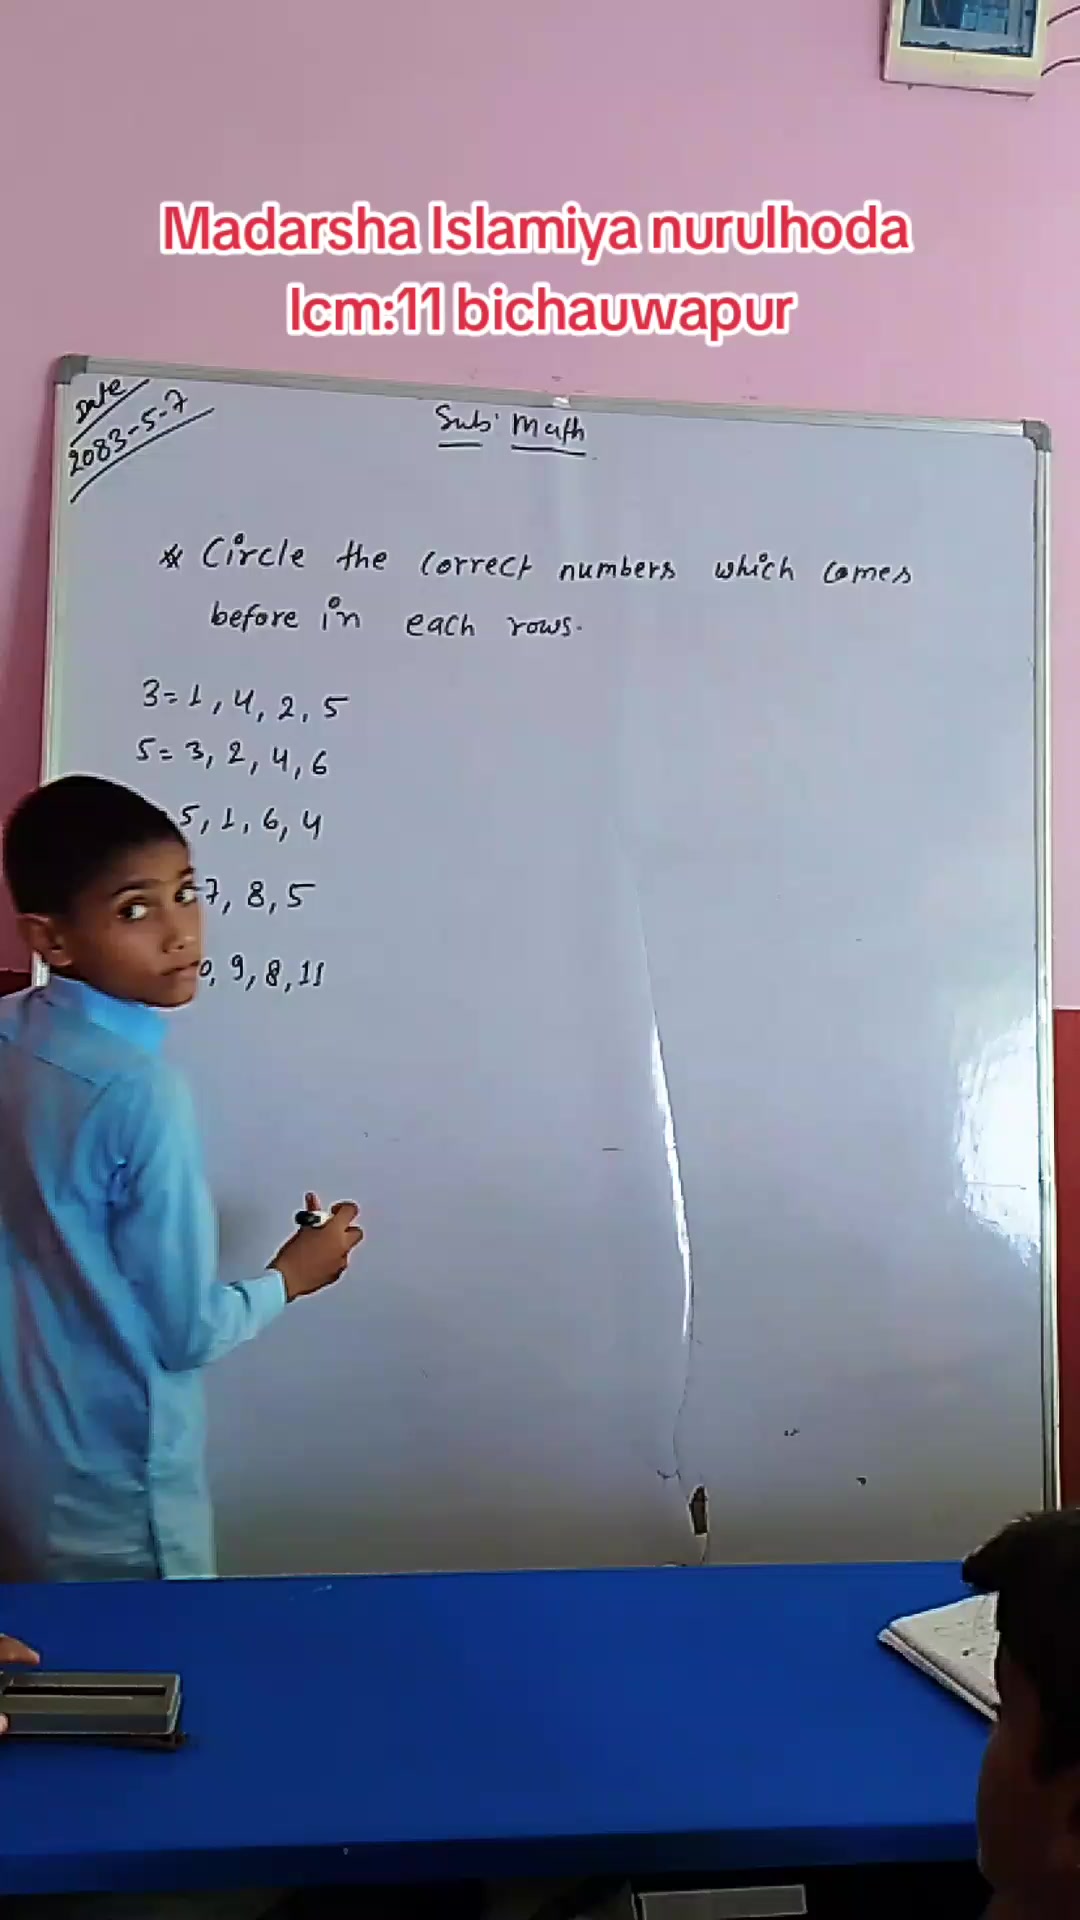 Madarsha Islamiya nurulhoda
lcm:11 bichauwapur
Date
2083-5-7
Sub: Math
* Circle the correct numbers which comes
before in each rows.
3=1, 4, 2, 5
5=3, 2, 4, 6
5, 1, 6, 4
7, 8, 5
0, 9, 8, 11